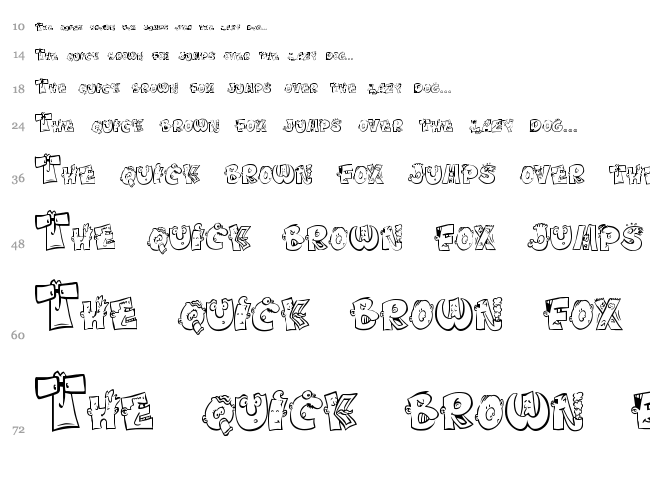 10 The quick brown fox jumps over the lazy Dog...
14 The quick brown fox jumps over the lazy Dog...
18 The quick brown fox jumps over the lazy Dog...
24 The quick brown fox jumps over the lazy Dog...
36 The quick brown fox jumps over the
48 The quick brown fox jumps
60 The quick brown fox
72 The quick brown